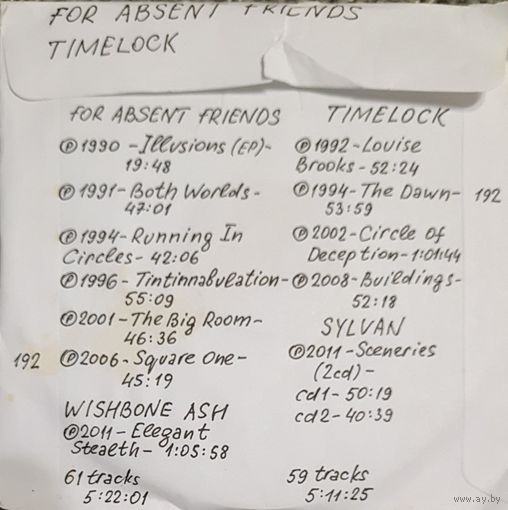 FOR ABSENT FRIENDS
TIMELOCK
FOR ABSENT FRIENDS
℗1990 - Illusions (EP)-
19:48
℗1991- Both Worlds-
47:01
℗1994- Running In
Circles- 42:06
℗1996- Tintinnabulation-
55:09
℗2001-The Big Room-
46:36
192 ℗2006- Square One-
45:19
WISHBONE ASH
℗2011- Elegant
Stealth- 1:05:58
61 tracks
5:22:01
TIMELOCK
℗1992-Louise
Brooks-52:24
℗1994-The Dawn- 192
53:59
℗2002-Circle of
Deception-1:01:44
℗2008-Buildings-
52:18
SYLVAN
℗2011-Sceneries
(2cd)-
cd1- 50:19
cd2- 40:39
59 tracks
5:11:25
www.ay.by